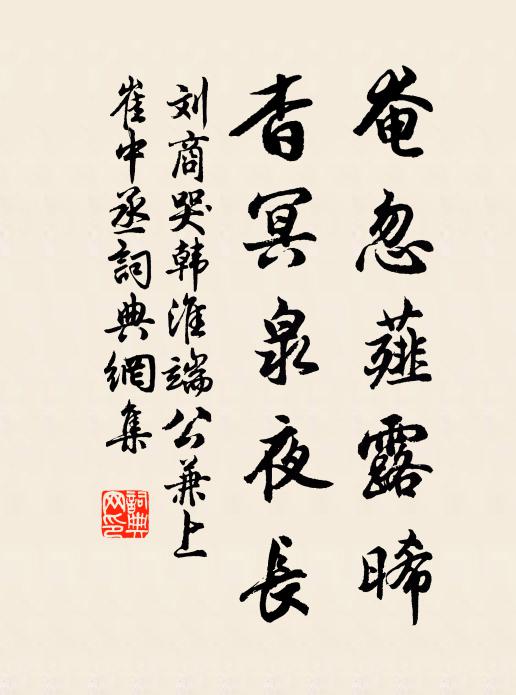 奄忽薤露晞
杳冥泉夜長
刘商哭韩淮端公兼上
崔中丞詞典網集
詞典网印